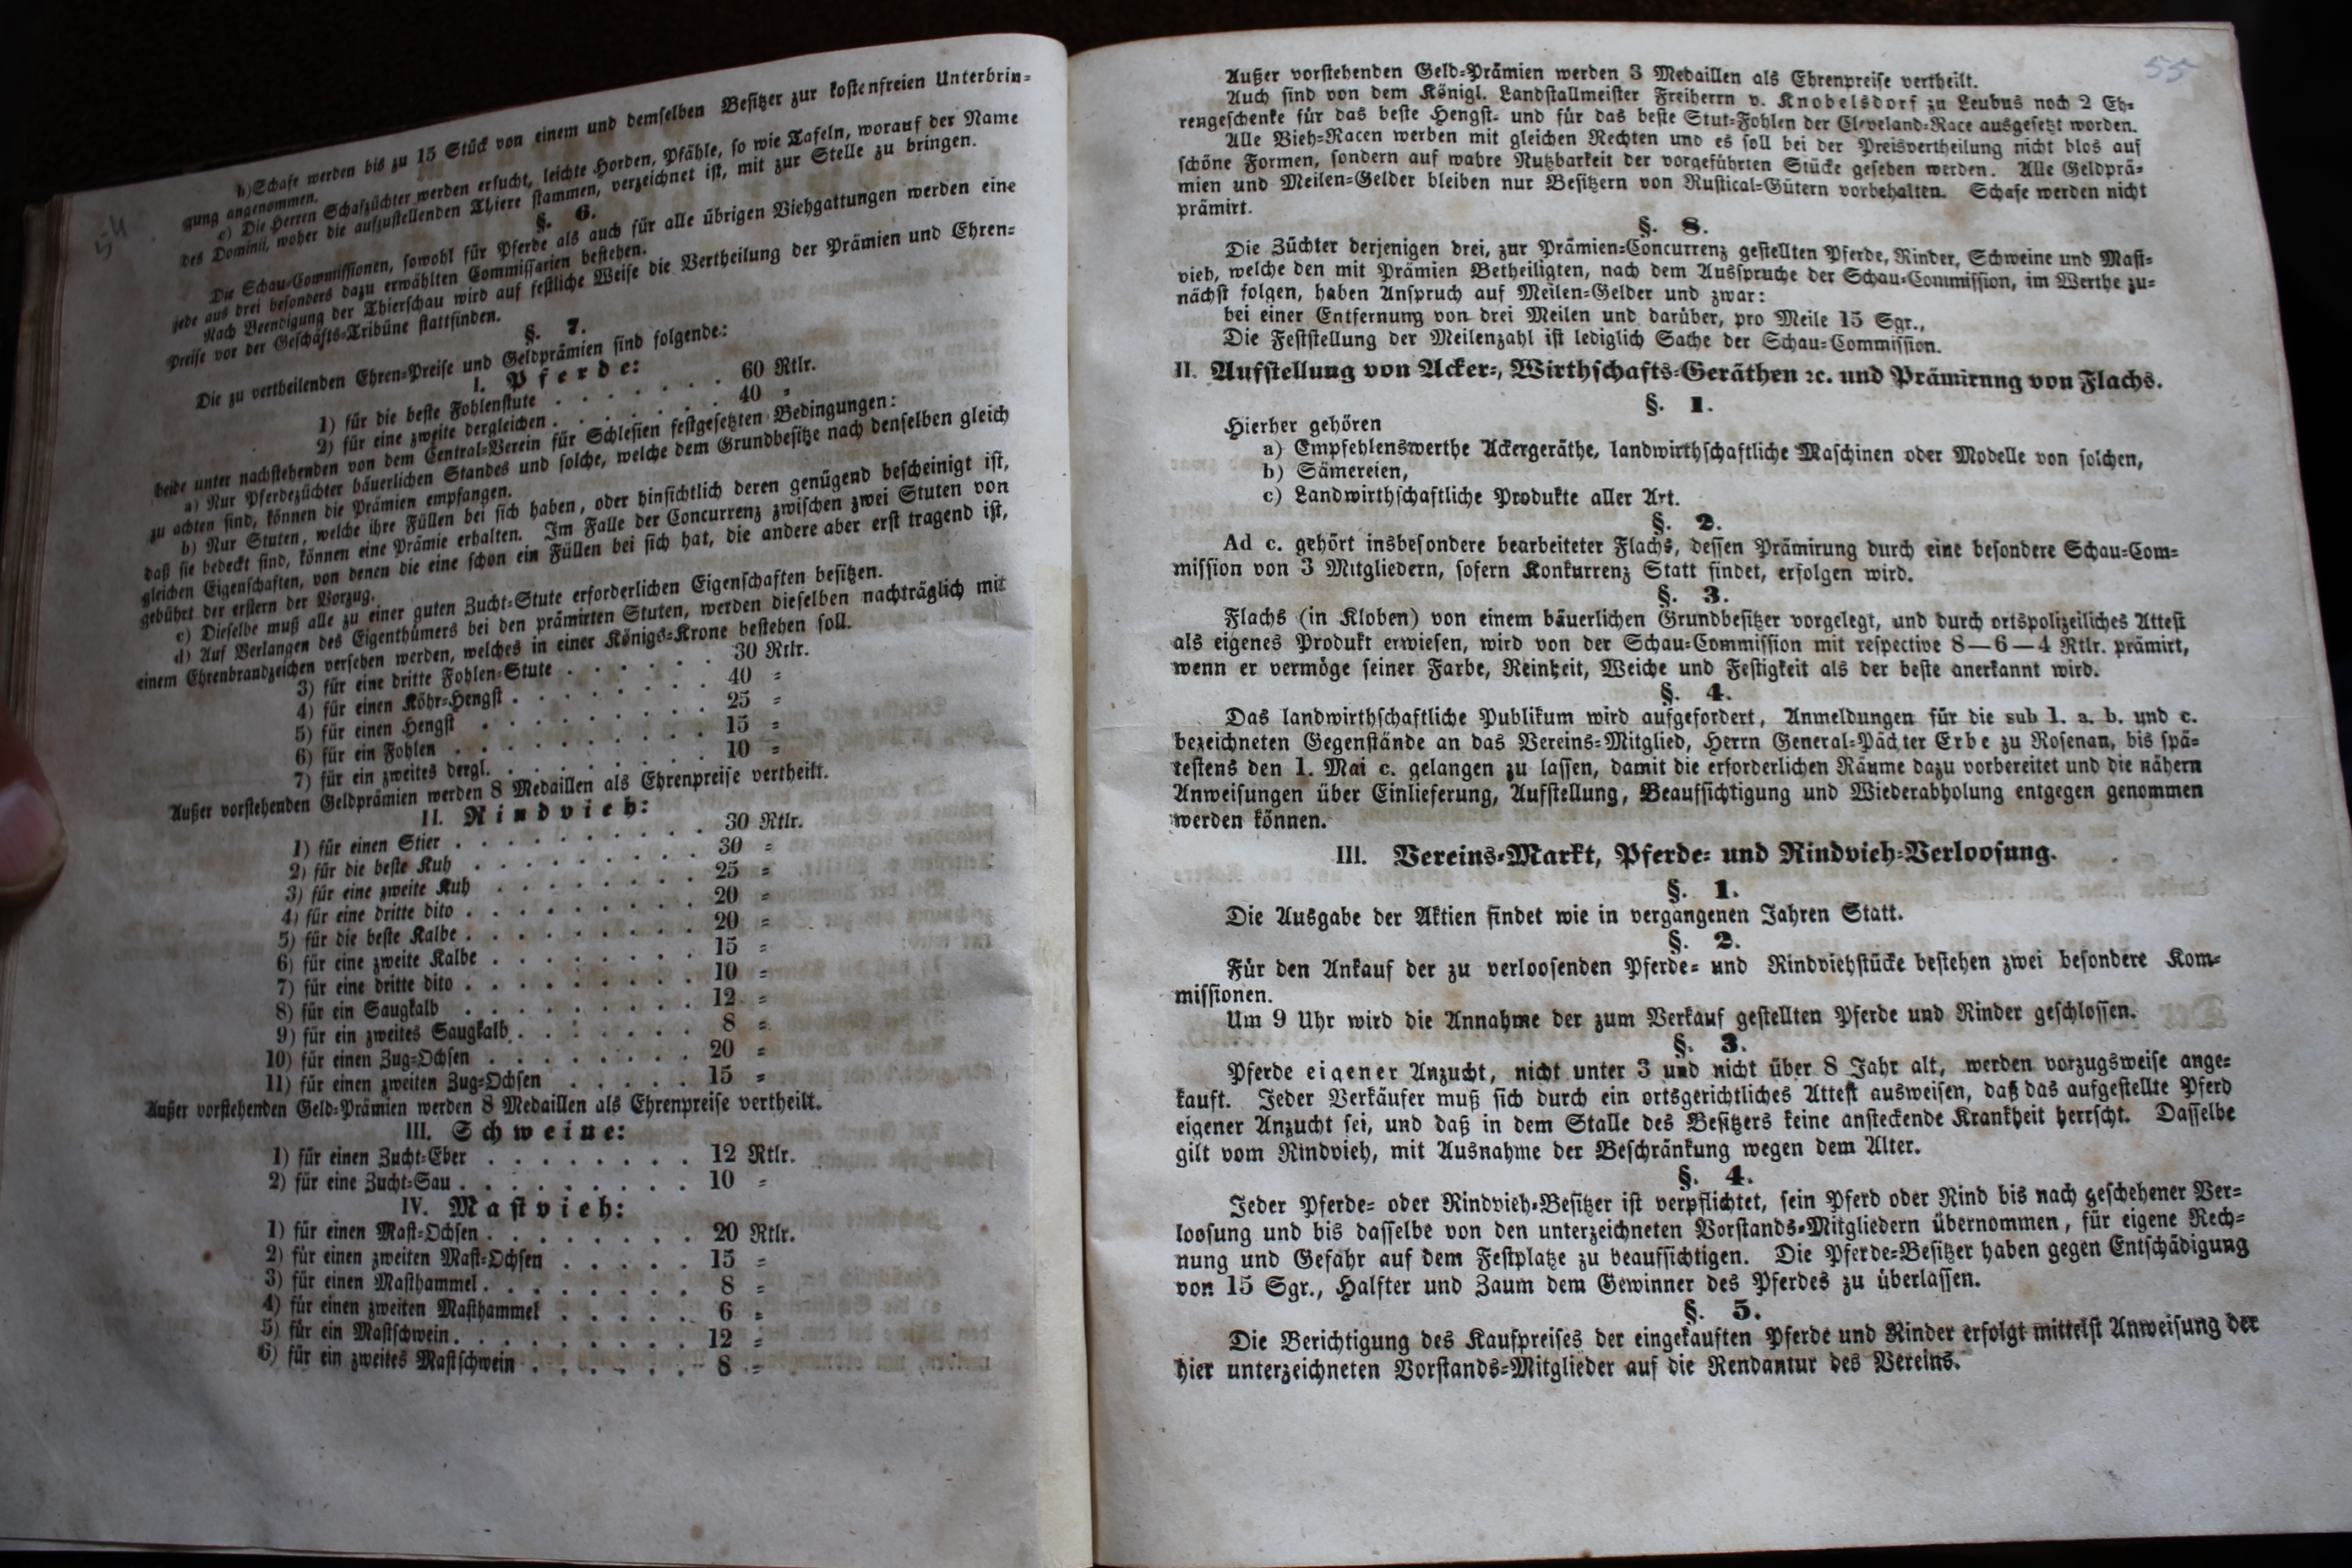 54
b) Schafe werden bis zu 15 Stück von einem und demselben Besitzer zur kostenfreien Unterbrin-
gung angenommen.
c) Die Herren Schafzüchter werden ersucht, leichte Horden, Pfähle, so wie Tafeln, worauf der Name
des Dominii, woher die aufzustellenden Thiere stammen, verzeichnet ist, mit zur Stelle zu bringen.
§. 6.
Die Schau-Commissionen, sowohl für Pferde als auch für alle übrigen Viehgattungen werden eine
jede aus drei besonders dazu erwählten Commissarien bestehen.
Nach Beendigung der Thierschau wird auf festliche Weise die Vertheilung der Prämien und Ehren-
preise vor der Geschäfts-Tribüne stattfinden.
§. 7.
Die zu vertheilenden Ehren-Preise und Geldprämien sind folgende:
I. Pferde:
1) für die beste Fohlenstute . . . . . . . 60 Rtlr.
2) für eine zweite dergleichen . . . . . . . 40 =
beide unter nachstehenden von dem Central-Verein für Schlesien festgesetzten Bedingungen:
a) Nur Pferdezüchter bäuerlichen Standes und solche, welche dem Grundbesitze nach denselben gleich
zu achten sind, können die Prämien empfangen.
b) Nur Stuten, welche ihre Füllen bei sich haben, oder hinsichtlich deren genügend bescheinigt ist,
daß sie bedeckt sind, können eine Prämie erhalten. Im Falle der Concurrenz zwischen zwei Stuten von
gleichen Eigenschaften, von denen die eine schon ein Füllen bei sich hat, die andere aber erst tragend ist,
gebührt der erstern der Vorzug.
c) Dieselbe muß alle zu einer guten Zucht-Stute erforderlichen Eigenschaften besitzen.
d) Auf Verlangen des Eigenthümers bei den prämirten Stuten, werden dieselben nachträglich mit
einem Ehrenbrandzeichen versehen werden, welches in einer Königs-Krone bestehen soll.
3) für eine dritte Fohlen-Stute . . . . . . 30 Rtlr.
4) für einen Köhr-Hengst . . . . . . . . 40 =
5) für einen Hengst . . . . . . . . . 25 =
6) für ein Fohlen . . . . . . . . . . 15 =
7) für ein zweites dergl. . . . . . . . . 10 =
Außer vorstehenden Geldprämien werden 8 Medaillen als Ehrenpreise vertheilt.
II. Rindvieh:
1) für einen Stier . . . . . . . . . . 30 Rtlr.
2) für die beste Kuh . . . . . . . . . 30 =
3) für eine zweite Kuh . . . . . . . . 25 =
4) für eine dritte dito . . . . . . . . . 20 =
5) für die beste Kalbe . . . . . . . . . 20 =
6) für eine zweite Kalbe . . . . . . . . 15 =
7) für eine dritte dito . . . . . . . . . 10 =
8) für ein Saugkalb . . . . . . . . . 12 =
9) für ein zweites Saugkalb . . . . . . . 8 =
10) für einen Zug-Ochsen . . . . . . . . 20 =
11) für einen zweiten Zug-Ochsen . . . . . 15 =
Außer vorstehenden Geld-Prämien werden 8 Medaillen als Ehrenpreise vertheilt.
III. Schweine:
1) für einen Zucht-Eber . . . . . . . . 12 Rtlr.
2) für eine Zucht-Sau . . . . . . . . . 10 =
IV. Mastvieh:
1) für einen Mast-Ochsen . . . . . . . . 20 Rtlr.
2) für einen zweiten Mast-Ochsen . . . . . 15 =
3) für einen Masthammel . . . . . . . . 8 =
4) für einen zweiten Masthammel . . . . . 6 =
5) für ein Mastschwein . . . . . . . . . 12 =
6) für ein zweites Mastschwein . . . . . . 8 =
55
Außer vorstehenden Geld-Prämien werden 3 Medaillen als Ehrenpreise vertheilt.
Auch sind von dem Königl. Landstallmeister Freiherrn v. Knobelsdorf zu Leubus noch 2 Eh-
rengeschenke für das beste Hengst- und für das beste Stut-Fohlen der Cleveland-Race ausgesetzt worden.
Alle Vieh-Racen werben mit gleichen Rechten und es soll bei der Preisvertheilung nicht blos auf
schöne Formen, sondern auf wahre Nutzbarkeit der vorgeführten Stücke gesehen werden. Alle Geldprä-
mien und Meilen-Gelder bleiben nur Besitzern von Rustical-Gütern vorbehalten. Schafe werden nicht
prämirt.
§. 8.
Die Züchter derjenigen drei, zur Prämien-Concurrenz gestellten Pferde, Rinder, Schweine und Mast-
vieh, welche den mit Prämien Betheiligten, nach dem Ausspruche der Schau-Commission, im Werthe zu-
nächst folgen, haben Anspruch auf Meilen-Gelder und zwar:
bei einer Entfernung von drei Meilen und darüber, pro Meile 15 Sgr.,
Die Feststellung der Meilenzahl ist lediglich Sache der Schau-Commission.
II. Aufstellung von Acker-, Wirthschafts-Geräthen ꝛc. und Prämirung von Flachs.
§. 1.
Hierher gehören
a) Empfehlenswerthe Ackergeräthe, landwirthschaftliche Maschinen oder Modelle von solchen,
b) Sämereien,
c) Landwirthschaftliche Produkte aller Art.
§. 2.
Ad c. gehört insbesondere bearbeiteter Flachs, dessen Prämirung durch eine besondere Schau-Com-
mission von 3 Mitgliedern, sofern Konkurrenz Statt findet, erfolgen wird.
§. 3.
Flachs (in Kloben) von einem bäuerlichen Grundbesitzer vorgelegt, und durch ortspolizeiliches Attest
als eigenes Produkt erwiesen, wird von der Schau-Commission mit respective 8—6—4 Rtlr. prämirt,
wenn er vermöge seiner Farbe, Reinheit, Weiche und Festigkeit als der beste anerkannt wird.
§. 4.
Das landwirthschaftliche Publikum wird aufgefordert, Anmeldungen für die sub 1. a. b. und c.
bezeichneten Gegenstände an das Vereins-Mitglied, Herrn General-Pächter Erbe zu Rosenan, bis spä-
testens den 1. Mai c. gelangen zu lassen, damit die erforderlichen Räume dazu vorbereitet und die nähern
Anweisungen über Einlieferung, Aufstellung, Beaufsichtigung und Wiederabholung entgegen genommen
werden können.
III. Vereins-Markt, Pferde- und Rindvieh-Verloosung.
§. 1.
Die Ausgabe der Aktien findet wie in vergangenen Jahren Statt.
§. 2.
Für den Ankauf der zu verloosenden Pferde- und Rindviehstücke bestehen zwei besondere Kom-
missionen.
Um 9 Uhr wird die Annahme der zum Verkauf gestellten Pferde und Rinder geschlossen.
§. 3.
Pferde eigener Anzucht, nicht unter 3 und nicht über 8 Jahr alt, werden vorzugsweise ange-
kauft. Jeder Verkäufer muß sich durch ein ortsgerichtliches Attest ausweisen, daß das aufgestellte Pferd
eigener Anzucht sei, und daß in dem Stalle des Besitzers keine ansteckende Krankheit herrscht. Dasselbe
gilt vom Rindvieh, mit Ausnahme der Beschränkung wegen dem Alter.
§. 4.
Jeder Pferde- oder Rindvieh-Besitzer ist verpflichtet, sein Pferd oder Rind bis nach geschehener Ver-
loosung und bis dasselbe von den unterzeichneten Vorstands-Mitgliedern übernommen, für eigene Rech-
nung und Gefahr auf dem Festplatze zu beaufsichtigen. Die Pferde-Besitzer haben gegen Entschädigung
von 15 Sgr., Halfter und Zaum dem Gewinner des Pferdes zu überlassen.
§. 5.
Die Berichtigung des Kaufpreises der eingekauften Pferde und Rinder erfolgt mittelst Anweisung der
hier unterzeichneten Vorstands-Mitglieder auf die Rendantur des Vereins.